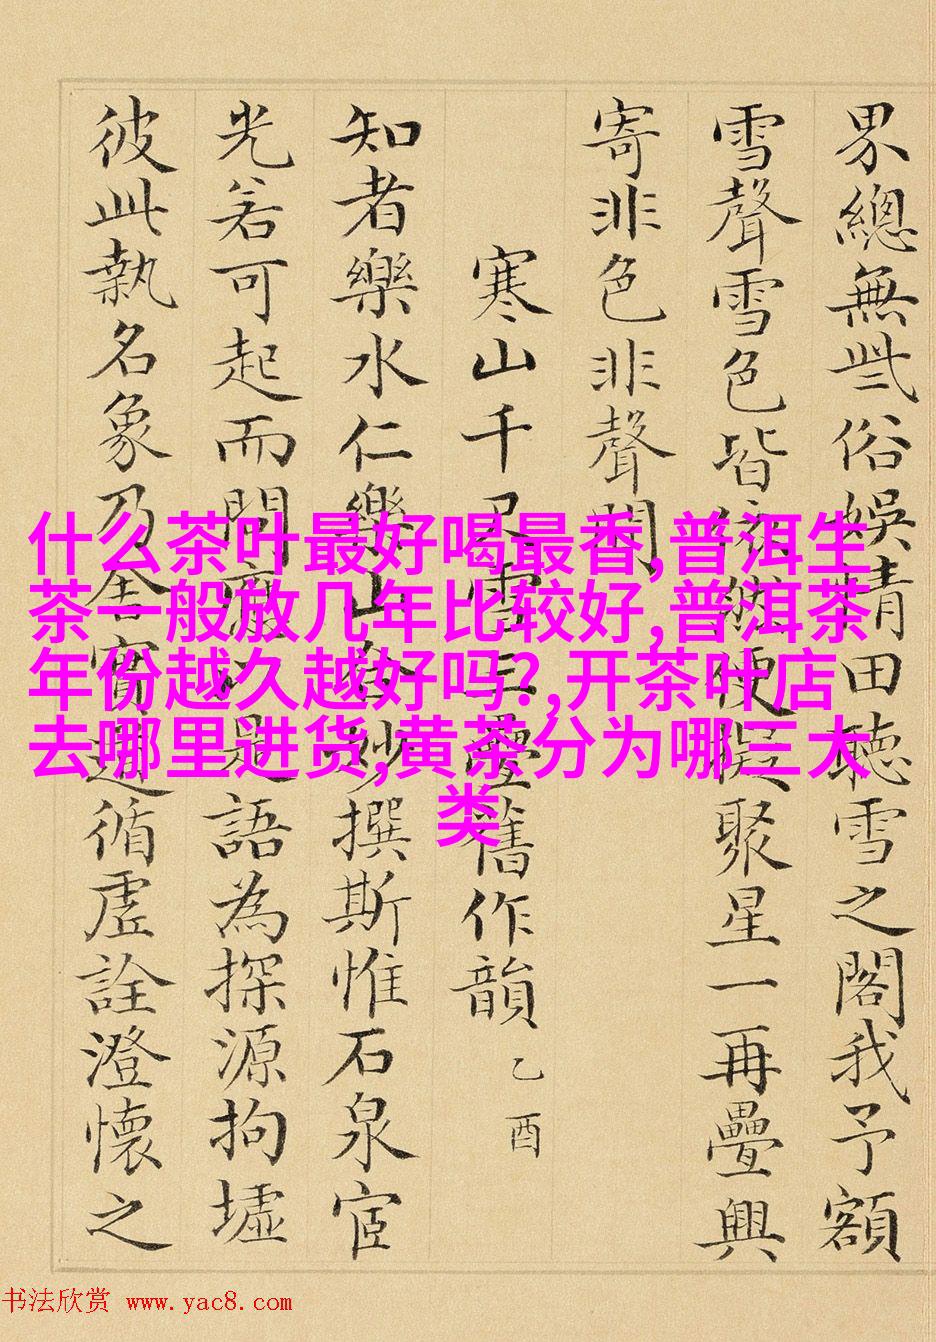 界總無些俗娛情田聽雪之閣我予額
雪聲雪色皆便擬聚星一再疊興
寄非色非聲間
寒山千尺雪三疊舊作韻 乙酉
知者樂水仁樂山妙撰斯惟石泉宦
光若可起而問是語為探源拘墟
彼此執名象乃舍實循虛詮澄懷之
什么茶叶最好喝最香,普洱生
茶一般放几年比较好,普洱茶
年份越久越好吗?,开茶叶店
去哪里进货,黄茶分为哪三大
类
书法欣赏 www.yac8.com